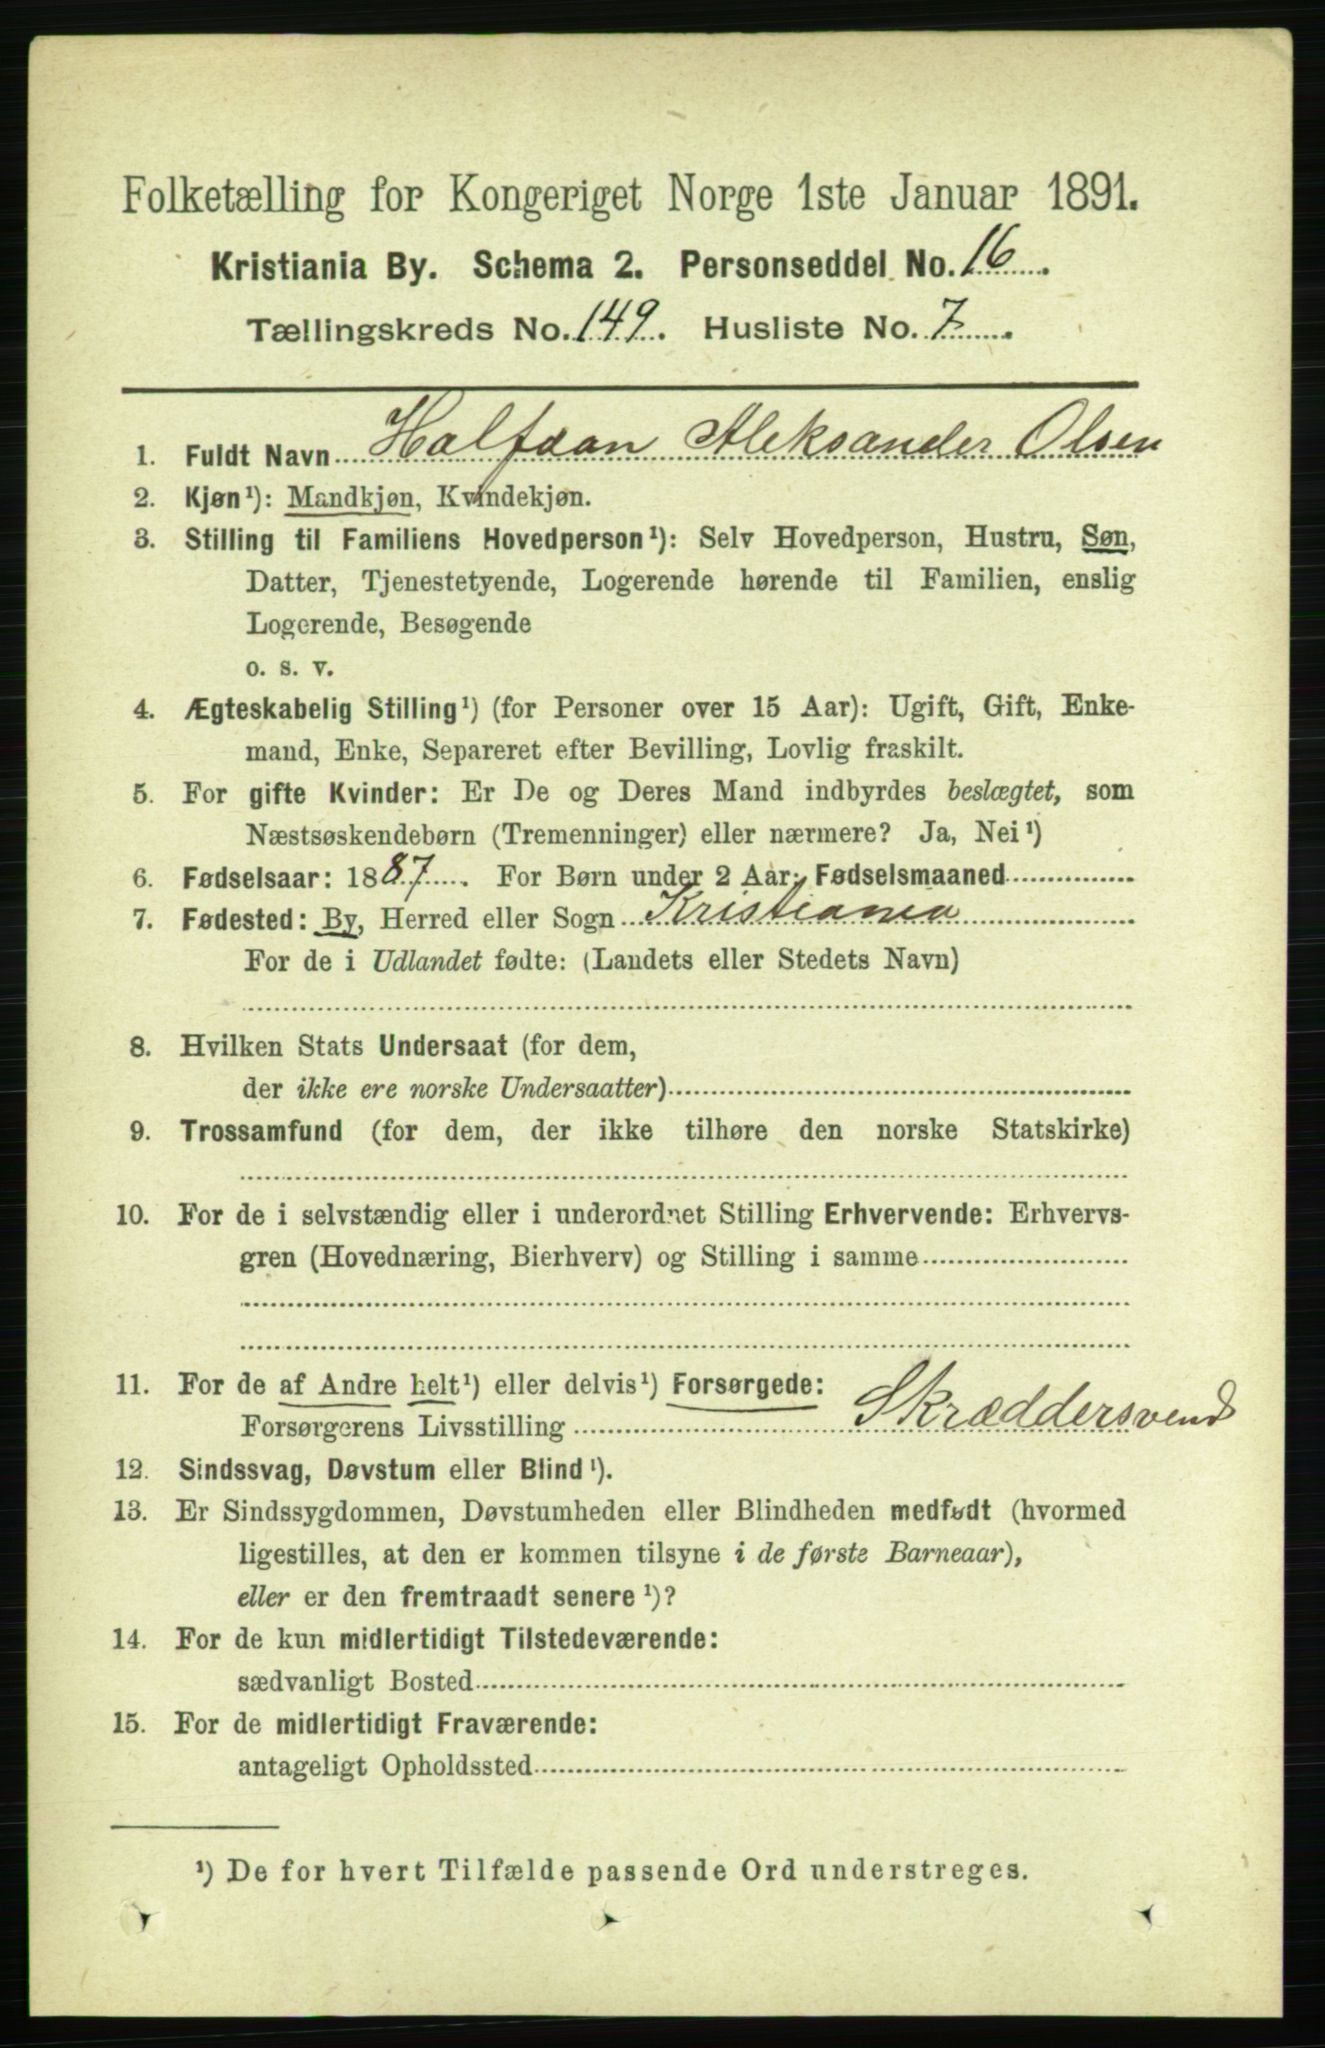 Folketælling for Kongeriget Norge 1ste Januar 1891.
Kristiania By. Schema 2. Personseddel No. 16.
Tællingskreds No. 149. Husliste No. 7.
1. Fuldt Navn Halfdan Aleksander Olsen
2. Kjøn¹): Mandkjøn, Kvindekjøn.
3. Stilling til Familiens Hovedperson¹): Selv Hovedperson, Hustru, Søn,
Datter, Tjenestetyende, Logerende hørende til Familien, enslig
Logerende, Besøgende
o. s. v.
4. Ægteskabelig Stilling¹) (for Personer over 15 Aar): Ugift, Gift, Enke-
mand, Enke, Separeret efter Bevilling, Lovlig fraskilt.
5. For gifte Kvinder: Er De og Deres Mand indbyrdes beslægtet, som
Næstsøskendebørn (Tremenninger) eller nærmere? Ja, Nei¹)
6. Fødselsaar: 1887. For Børn under 2 Aar: Fødselsmaaned
7. Fødested: By, Herred eller Sogn Kristiania
For de i Udlandet fødte: (Landets eller Stedets Navn)
8. Hvilken Stats Undersaat (for dem,
der ikke ere norske Undersaatter)
9. Trossamfund (for dem, der ikke tilhøre den norske Statskirke)
10. For de i selvstændig eller i underordnet Stilling Erhvervende: Erhvervs-
gren (Hovednæring, Bierhverv) og Stilling i samme
11. For de af Andre helt¹) eller delvis¹) Forsørgede:
Forsørgerens Livsstilling Skræddersvend
12. Sindssvag, Døvstum eller Blind¹).
13. Er Sindssygdommen, Døvstumheden eller Blindheden medfødt (hvormed
ligestilles, at den er kommen tilsyne i de første Barneaar),
eller er den fremtraadt senere¹)?
14. For de kun midlertidigt Tilstedeværende:
sædvanligt Bosted
15. For de midlertidigt Fraværende:
antageligt Opholdssted
¹) De for hvert Tilfælde passende Ord understreges.